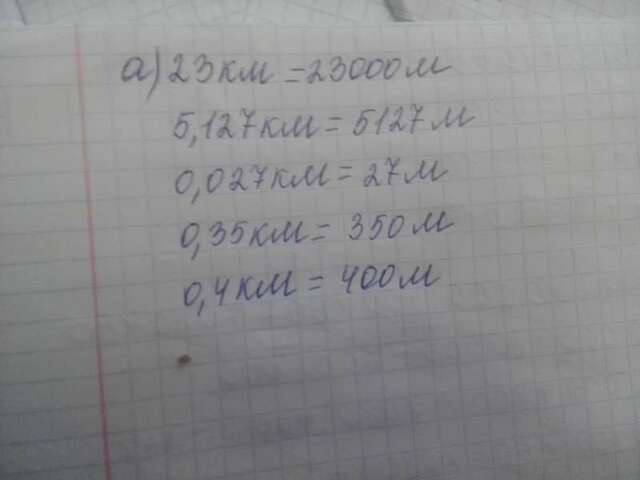 а) 23км = 23000м
5,127км = 5127м
0,027км = 27м
0,35км = 350м
0,4км = 400м